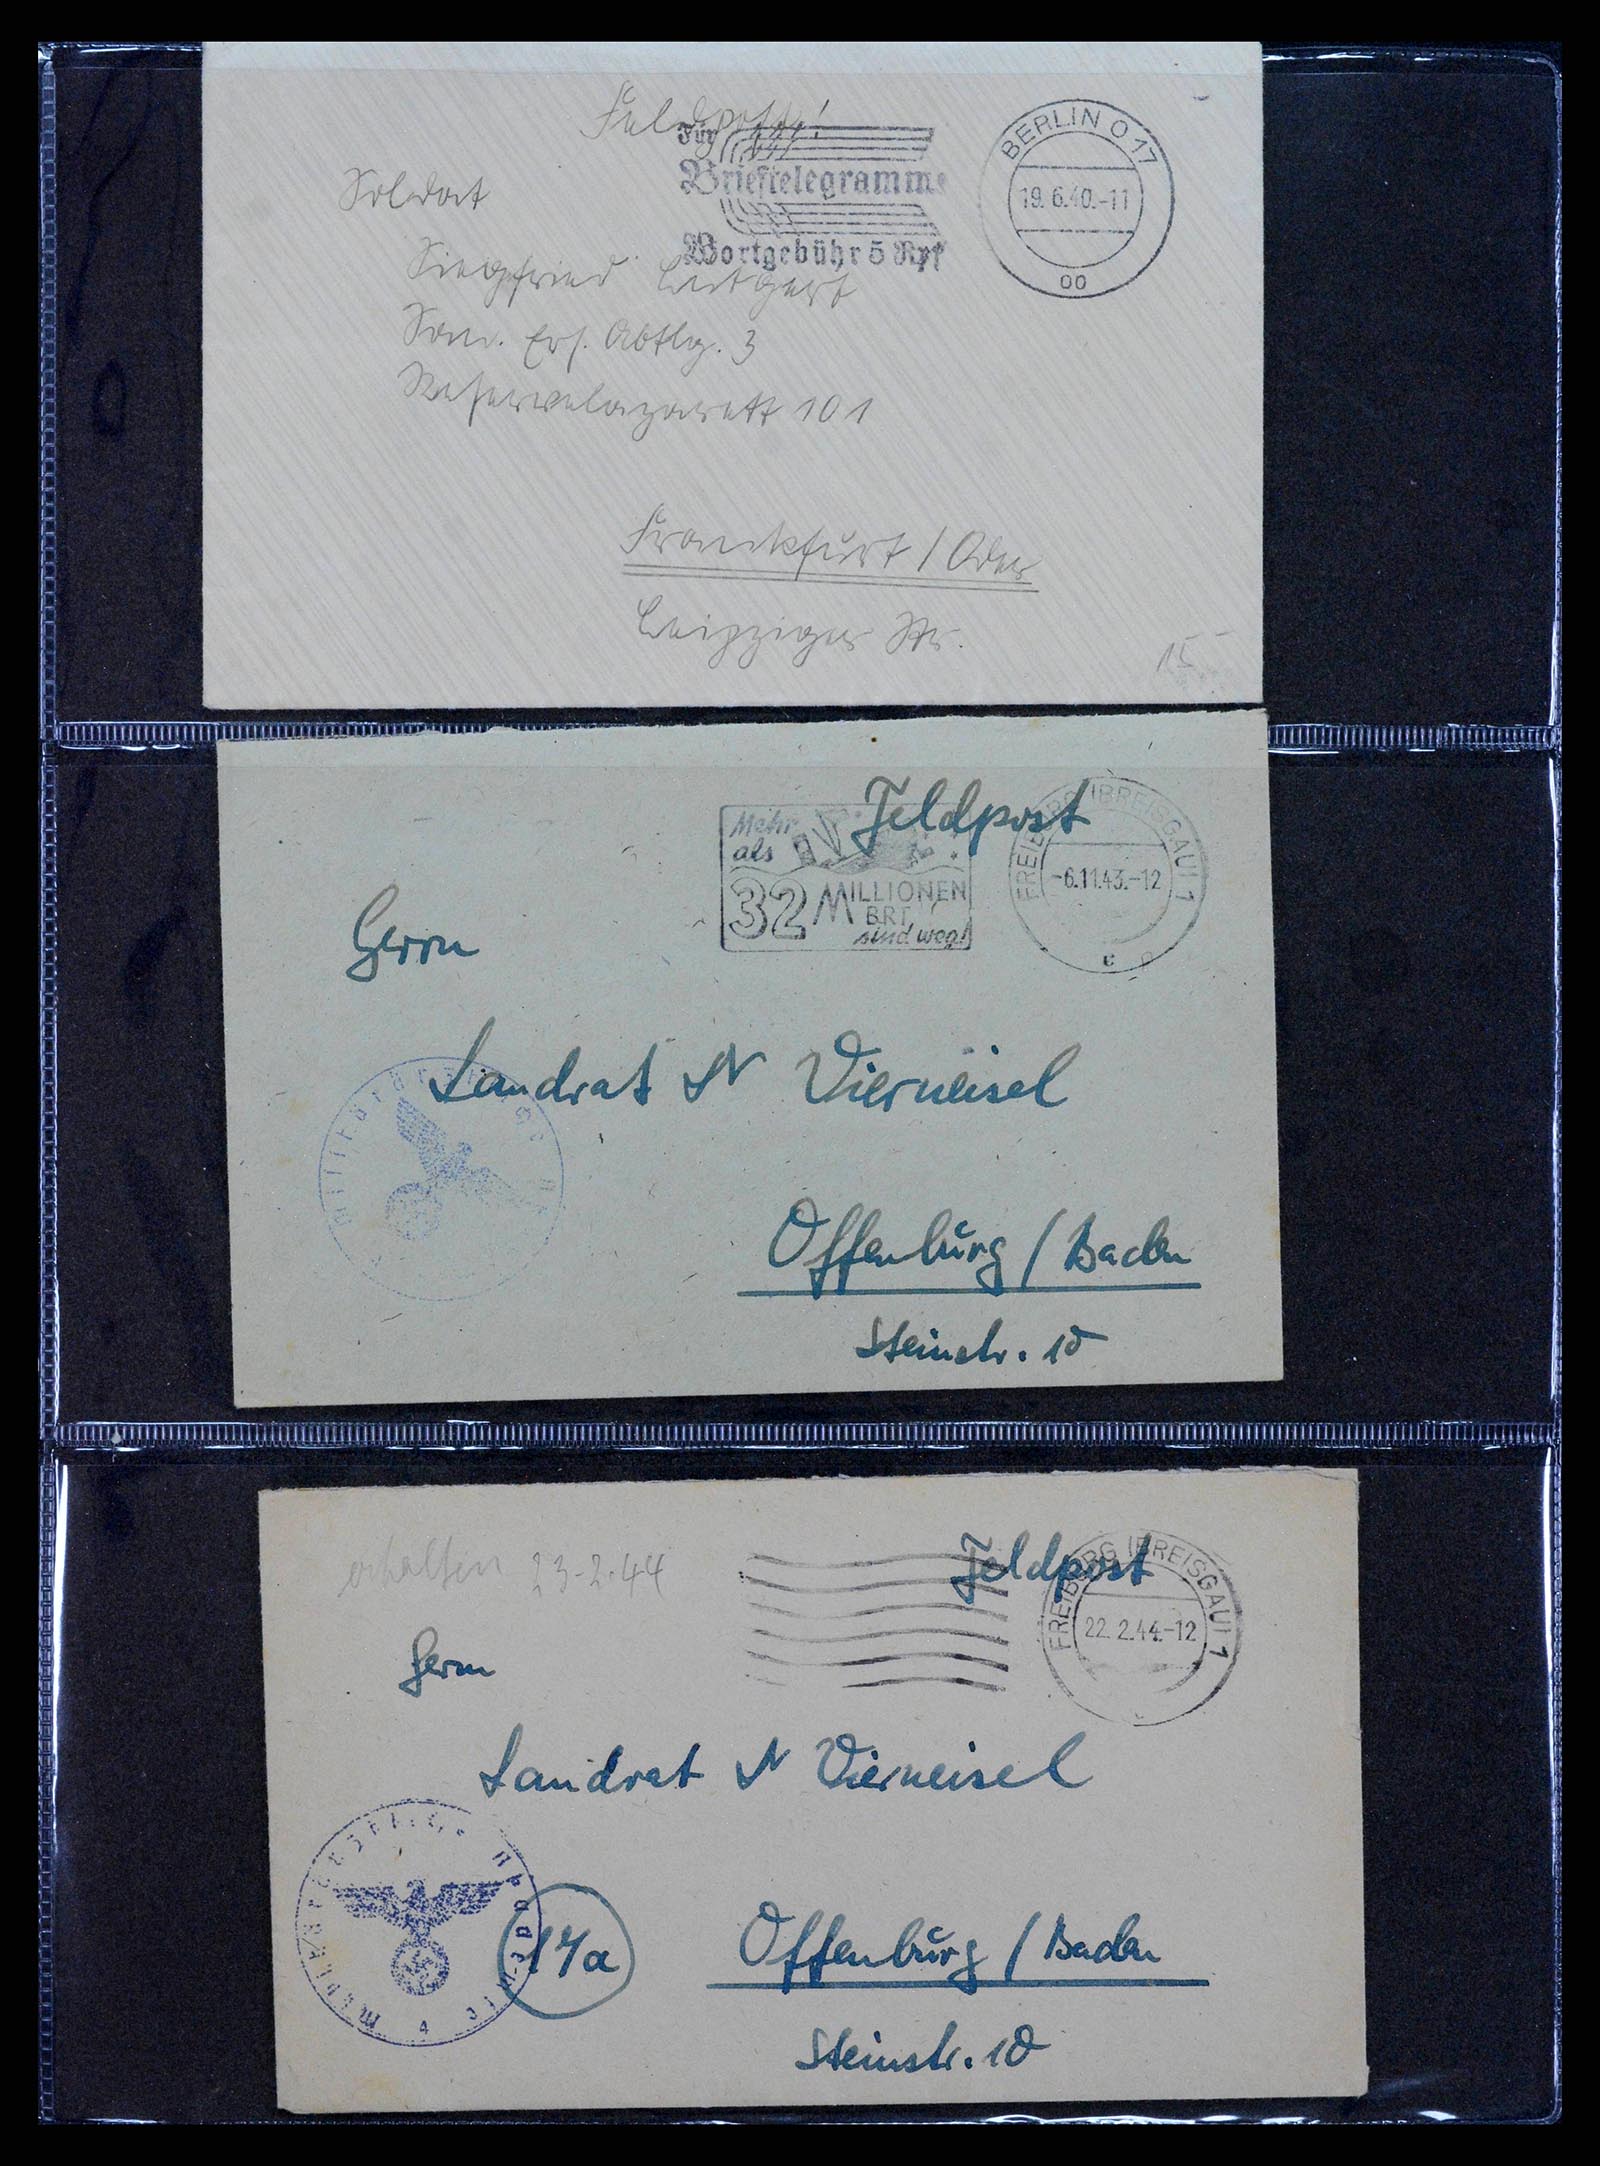 Feldpost!
Für
Brieftelegramme
Wortgebühr 5 Rpf
BERLIN O 17
19.6.40.-11
oo
Soldat
Siegfried
Ers. Abtlg. 3
Reservelazarett 101
Frankfurt / Oder
Leipziger Str.
15
Feldpost
Mehr
als
32 MILLIONEN
BRT
sind weg!
FREIBURG (BREISGAU) 1
-6.11.43.-12
c
Herrn
Landrat Dr Vierneisel
Offenburg / Baden
Steinstr. 10
erhalten 23-2-44
Feldpost
FREIBURG (BREISGAU) 1
22.2.44.-12
Herrn
Landrat Dr Vierneisel
17a
Offenburg / Baden
Steinstr. 10